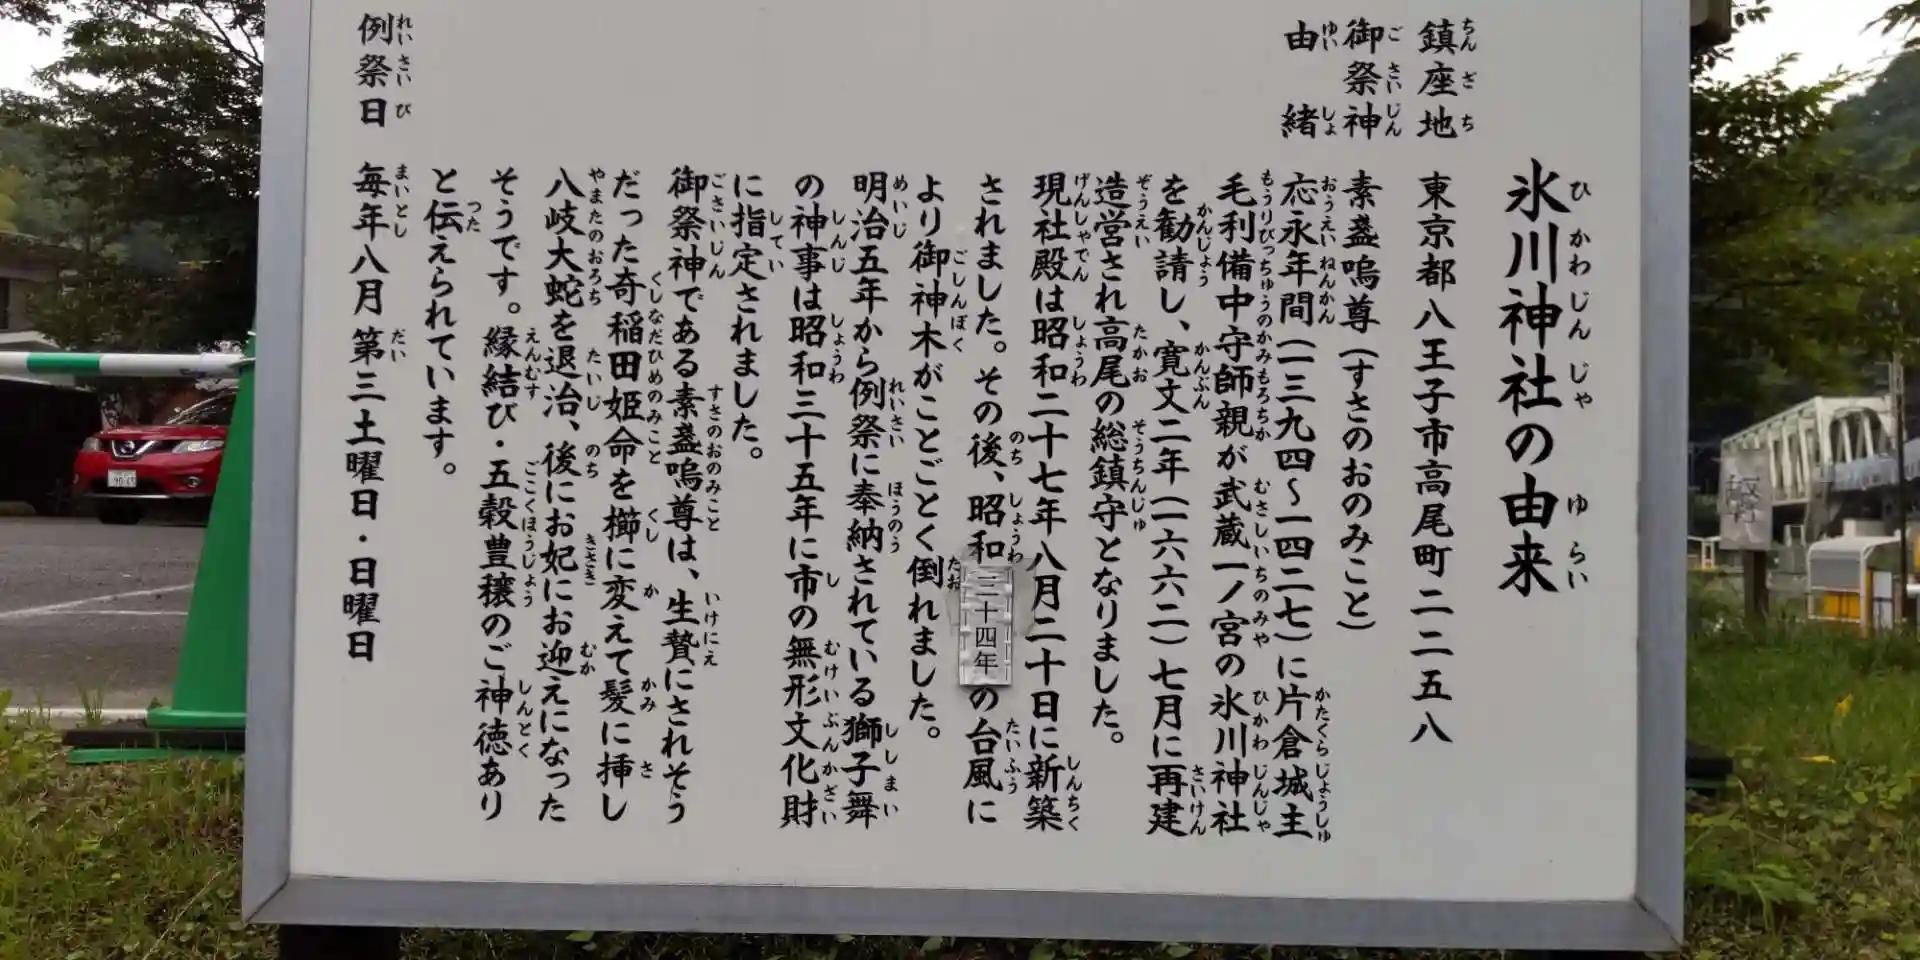 氷川神社の由来
鎮座地　東京都八王子市高尾町二二五八
御祭神　素盞嗚尊（すさのおのみこと）
由緒　応永年間（一三九四～一四二七）に片倉城主
毛利備中守師親が武蔵一ノ宮の氷川神社
を勧請し、寛文二年（一六六二）七月に再建
造営され高尾の総鎮守となりました。
現社殿は昭和二十七年八月二十日に新築
されました。その後、昭和三十四年の台風に
より御神木がことごとく倒れました。
明治五年から例祭に奉納されている獅子舞
の神事は昭和三十五年に市の無形文化財
に指定されました。
御祭神である素盞嗚尊は、生贄にされそう
だった奇稲田姫命を櫛に変えて髪に挿し
八岐大蛇を退治、後にお妃にお迎えになった
そうです。縁結び・五穀豊穣のご神徳あり
と伝えられています。
例祭日　毎年八月第三土曜日・日曜日